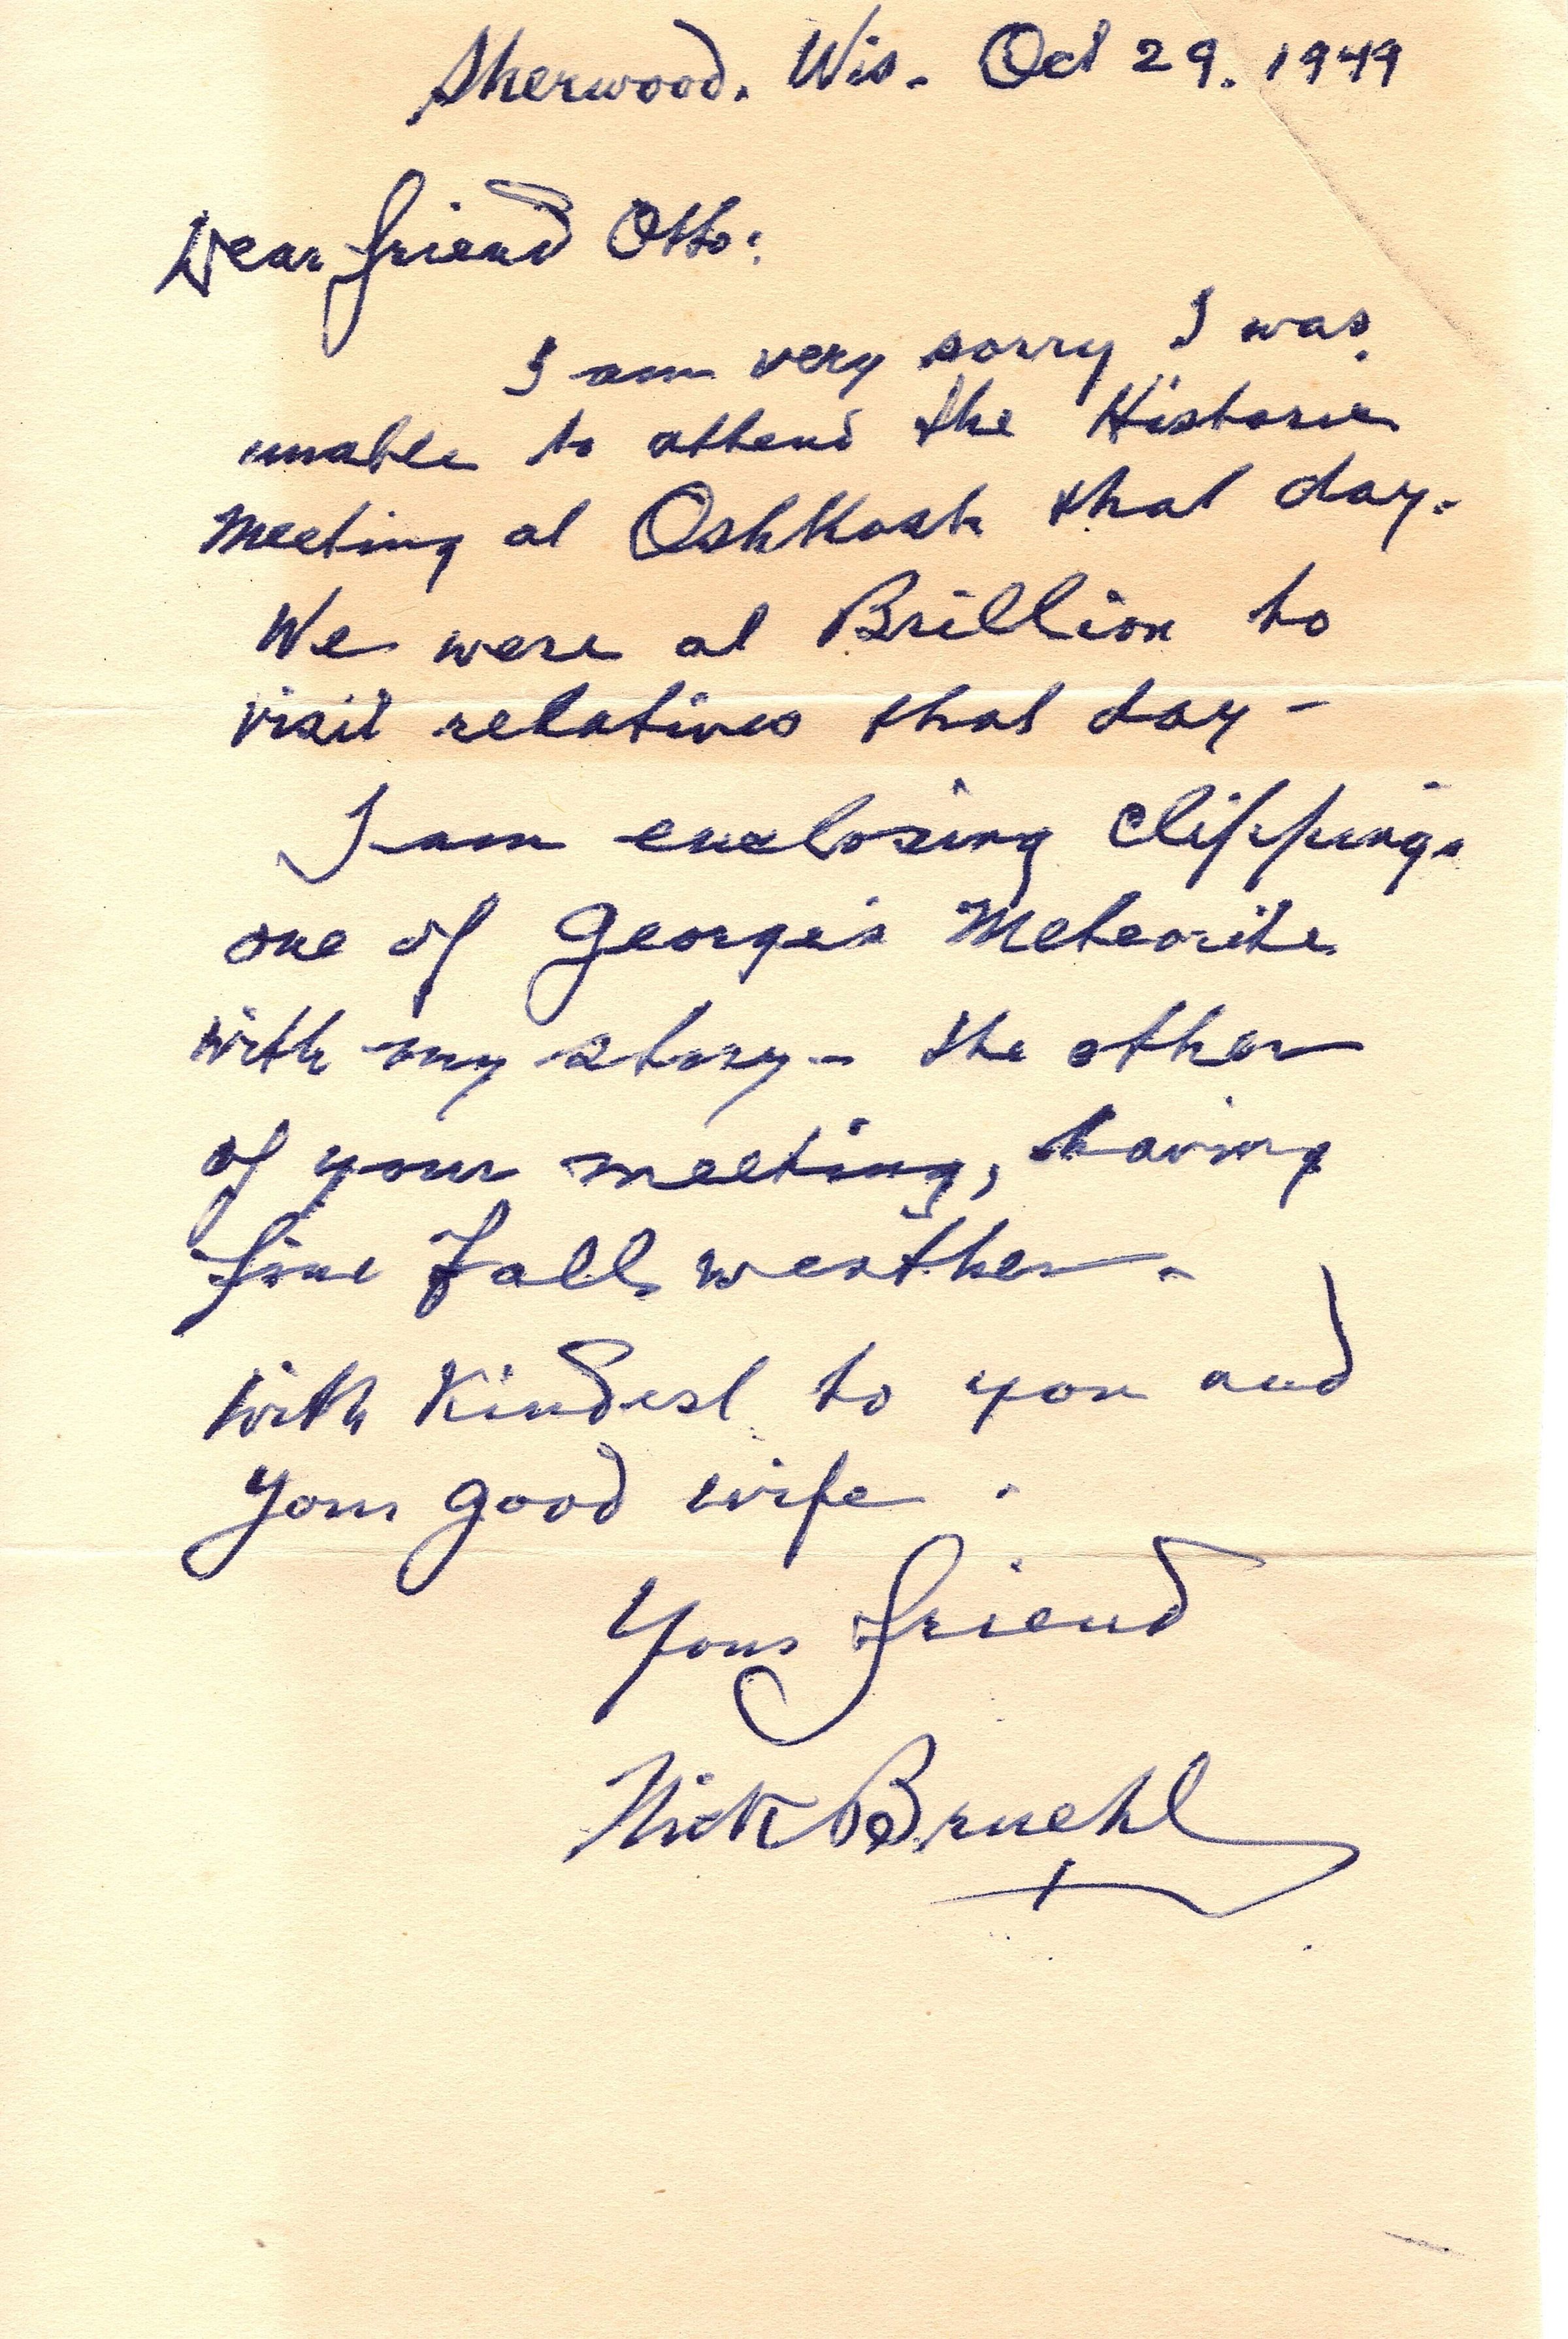 Sherwood. Wis. Oct 29. 1949
Dear friend Otto:
I am very sorry I was
unable to attend the Historic
Meeting at Oshkosh that day.
We were at Brillion to
visit relatives that day -
I am enclosing clippings
one of George's Meteorite
with my story - the other
of your meeting, having
fine Fall weather -
with Kindest to you and
your good wife .
Your friend
Nick Bruehl